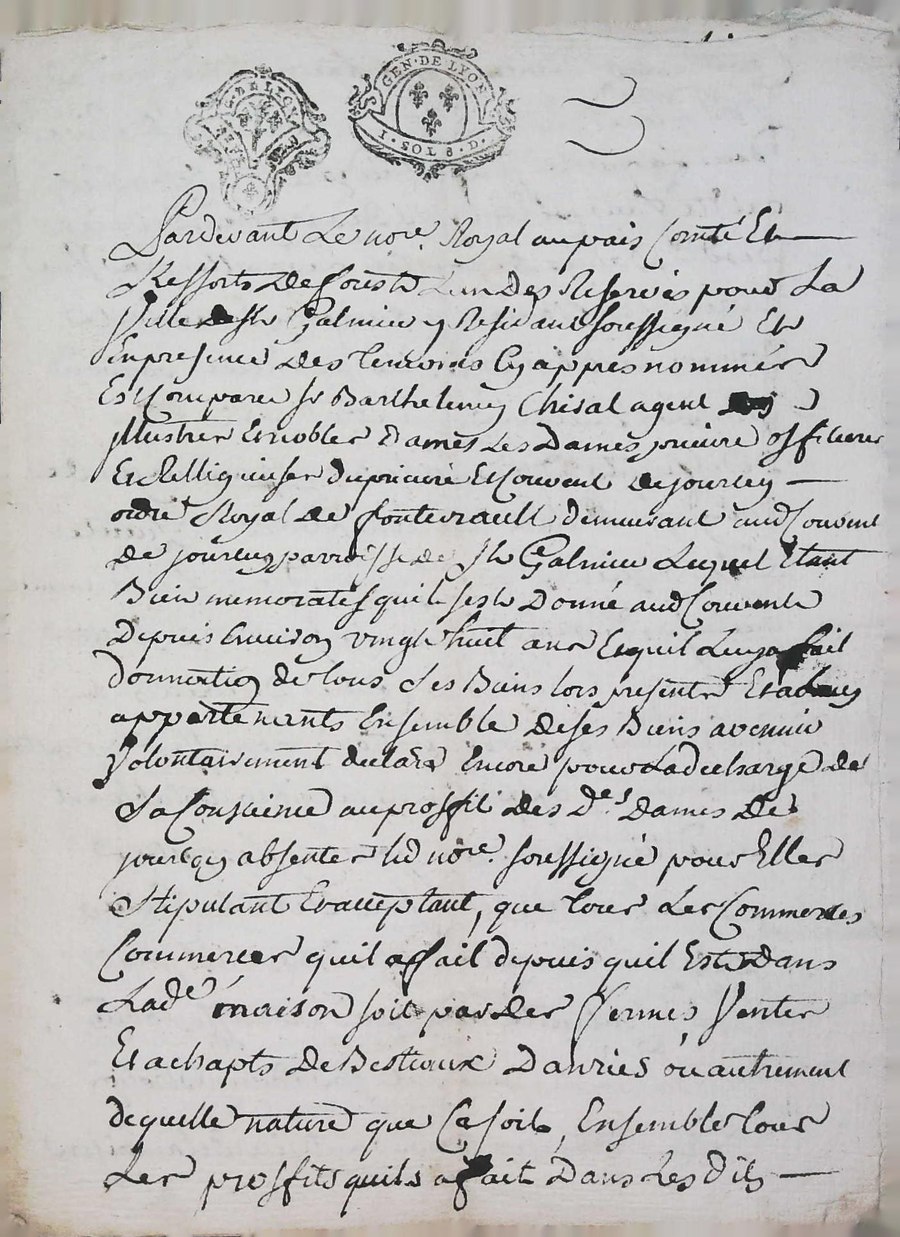 GEN · DE LYON
1 · SOL 8 · D ·
Pardevant Le nore. Royal au pais Comté Et
Ressorts De forest Lun Des Reservés pour La
Ville de St Galmier y Residant soussigné Et
En presence Des temoins Cy appres nommés
Est Comparu sr Barthelemy Chival agent
illustres Et nobles Dames Les Dames prieure offitieres
Et Relligieuses du prieuré Et Couvent de jourcey
ordre Royal de fontevrault demeurant aud Couvent
de jourcey parroisse de St Galmier Lequel Etant
Bien memoratif quil sest Donné aud Couvent
Depuis Environ vingt huit ans Et quil Luy a fait
Donnation de tous Ses Biens lors presents Et a luy
appartenants Ensemble de ses Biens avenir
volontairement declare Encore pour La decharge de
Sa Consience au proffit des Des. Dames De
jourcey absentes led nore. soussigné pour Elles
Stipulant Et acceptant, que tous Les Commerces
Commerces quil a fait depuis quil Est Dans
Lade maison soit par des fermes Ventes
Et achapts de Bestiaux Danrées ou autrement
de quelle nature que Ce soit, Ensemble tous
Les proffits quil a fait Dans Les Dits